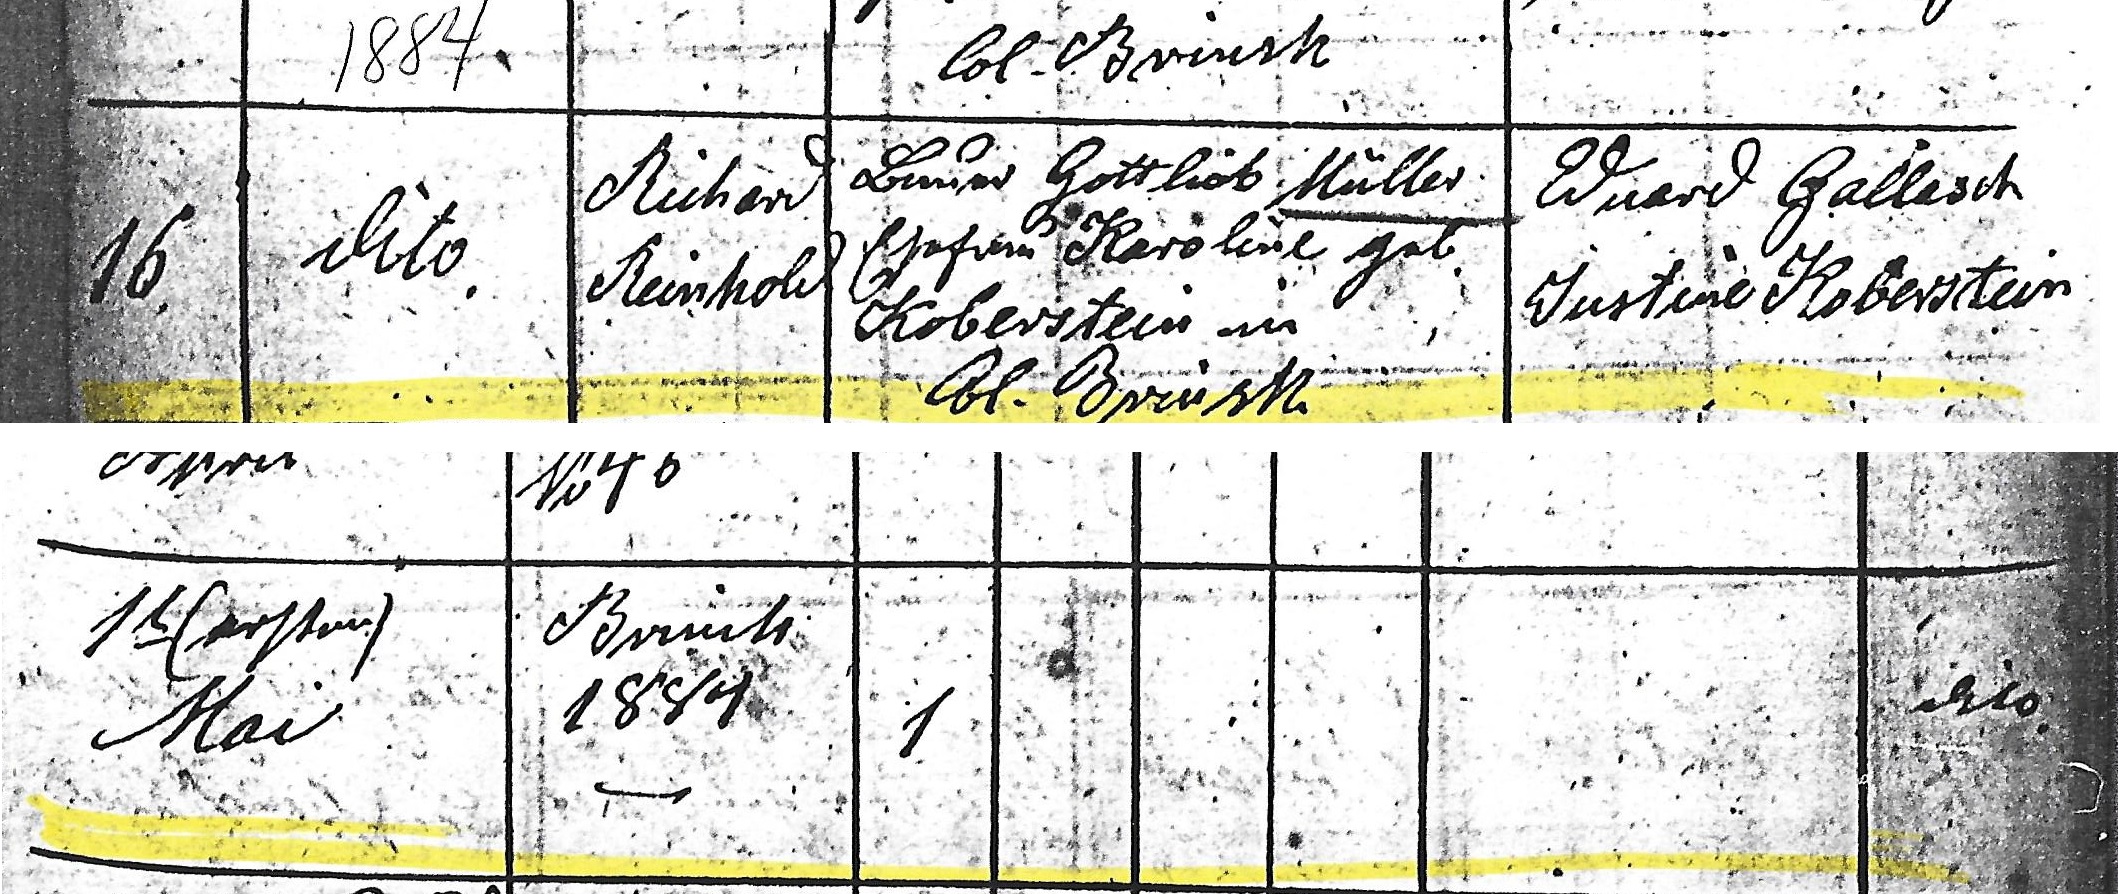 1884
Col. Brinsk
16.
dito.
Richard
Reinhold
Bauer Gottlieb Müller
Ehefrau Karoline geb.
Koberstein in
Col. Brinsk
Eduard Gallasch
Justine Koberstein
April
No 46
1t (ersten)
Mai
Brinsk
1884
1
dito